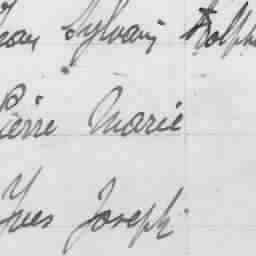 Jean Sylvain Rodolphe
Pierre Marie
Yves Joseph